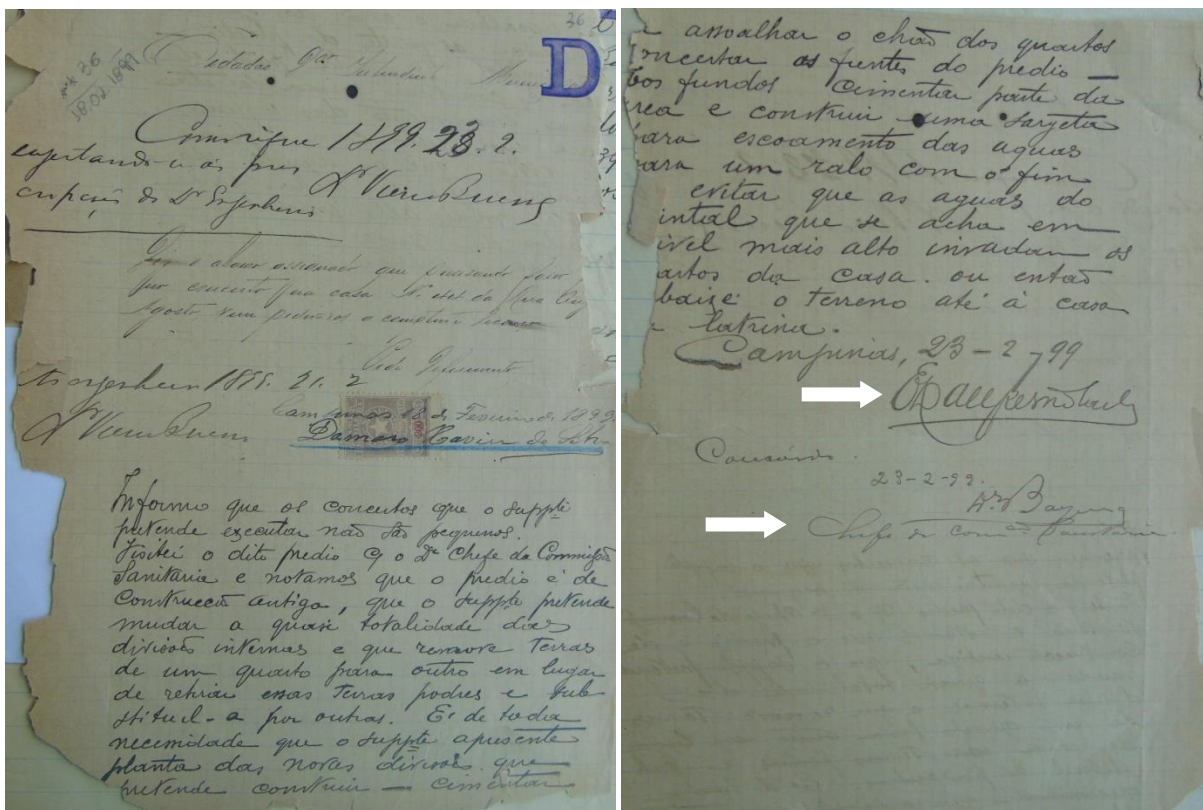 36
nº 36
18.02.1899
Cidadão
D
Como requer 1899. 23. 2.
sujeitando-se ás pres
cripções do Dr Engenheiro
Dr Vieira Bueno
abaixo assignado que precisando fazer
concerto casa Nº da Rua
Agosto vem pedir
Pede Deferimento
Ao engenheiro 1899. 21. 2
Campinas 18 de Fevereiro de 1899
Dr Vieira Bueno
Damaso Xavier da Silva
Informo que os concertos que o suppte
pretende executar não são pequenos.
Visitei o dito predio c/ o Dr Chefe da Commissão
Sanitaria e notamos que o predio é de
construcção antiga, que o suppte pretende
mudar a quasi totalidade das
divisões internas e que remove terras
de um quarto para outro em lugar
de retirar essas terras podres e sub
stituil-a por outras. E' de toda
necessidade que o suppte apresente
planta das novas divisões que
pretende construir — cimentar
assoalhar o chão dos quartos
concertar as frentes do predio —
fundos cimentar parte da
area e construir uma sargeta
para escoamento das aguas
para um ralo com o fim
evitar que as aguas do
quintal que se acha em
nivel mais alto invadam os
quartos da casa. ou então
baixe o terreno até à casa
latrina.
Campinas, 23-2-99
Concordo.
23-2-99.
Dr
Chefe da Comm. Sanitaria